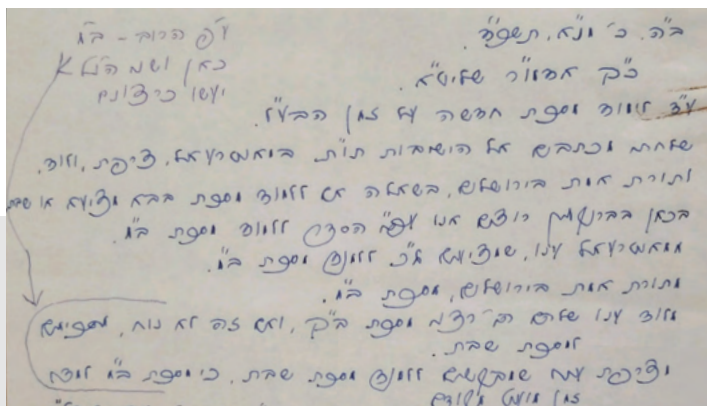 ב"ה. כ' מנ"א, תש
כ"ק אדמו"ר שליט"א.
ע"ד לימוד מסכת חדשה על זמן הבע"ל.
שלחתי מכתבים אל הישיבות תו"ת במאנטרעאל, צרפת, ולוד,
ותורת אמת בירושלים, בשאלה אם ללמוד מסכת בבא מציעא או שבת
בכאן בברונאי רוצים אנו עפ"י הסדר ללמוד מסכת ב"מ.
ממאנטרעאל ענו, שמציעים ג"כ ללמוד מסכת ב"מ.
מתורת אמת בירושלים, מסכת ב"מ.
מלוד ענו שלהם הי' רצוי מסכת ב"ק, ואם זה לא נוח, מסכימים
למסכת שבת.
מצרפת ענו שמבקשים ללמוד מסכת שבת, כי מסכת ב"מ למדו
זמן מועט מקודם
ע"פ הרוב - ב"מ
כאן ושם הנ"ל
יעשו כרצונם